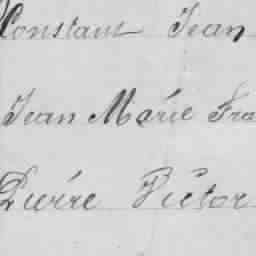 Constant Jean
Jean Marie Fra
Pierre Victor